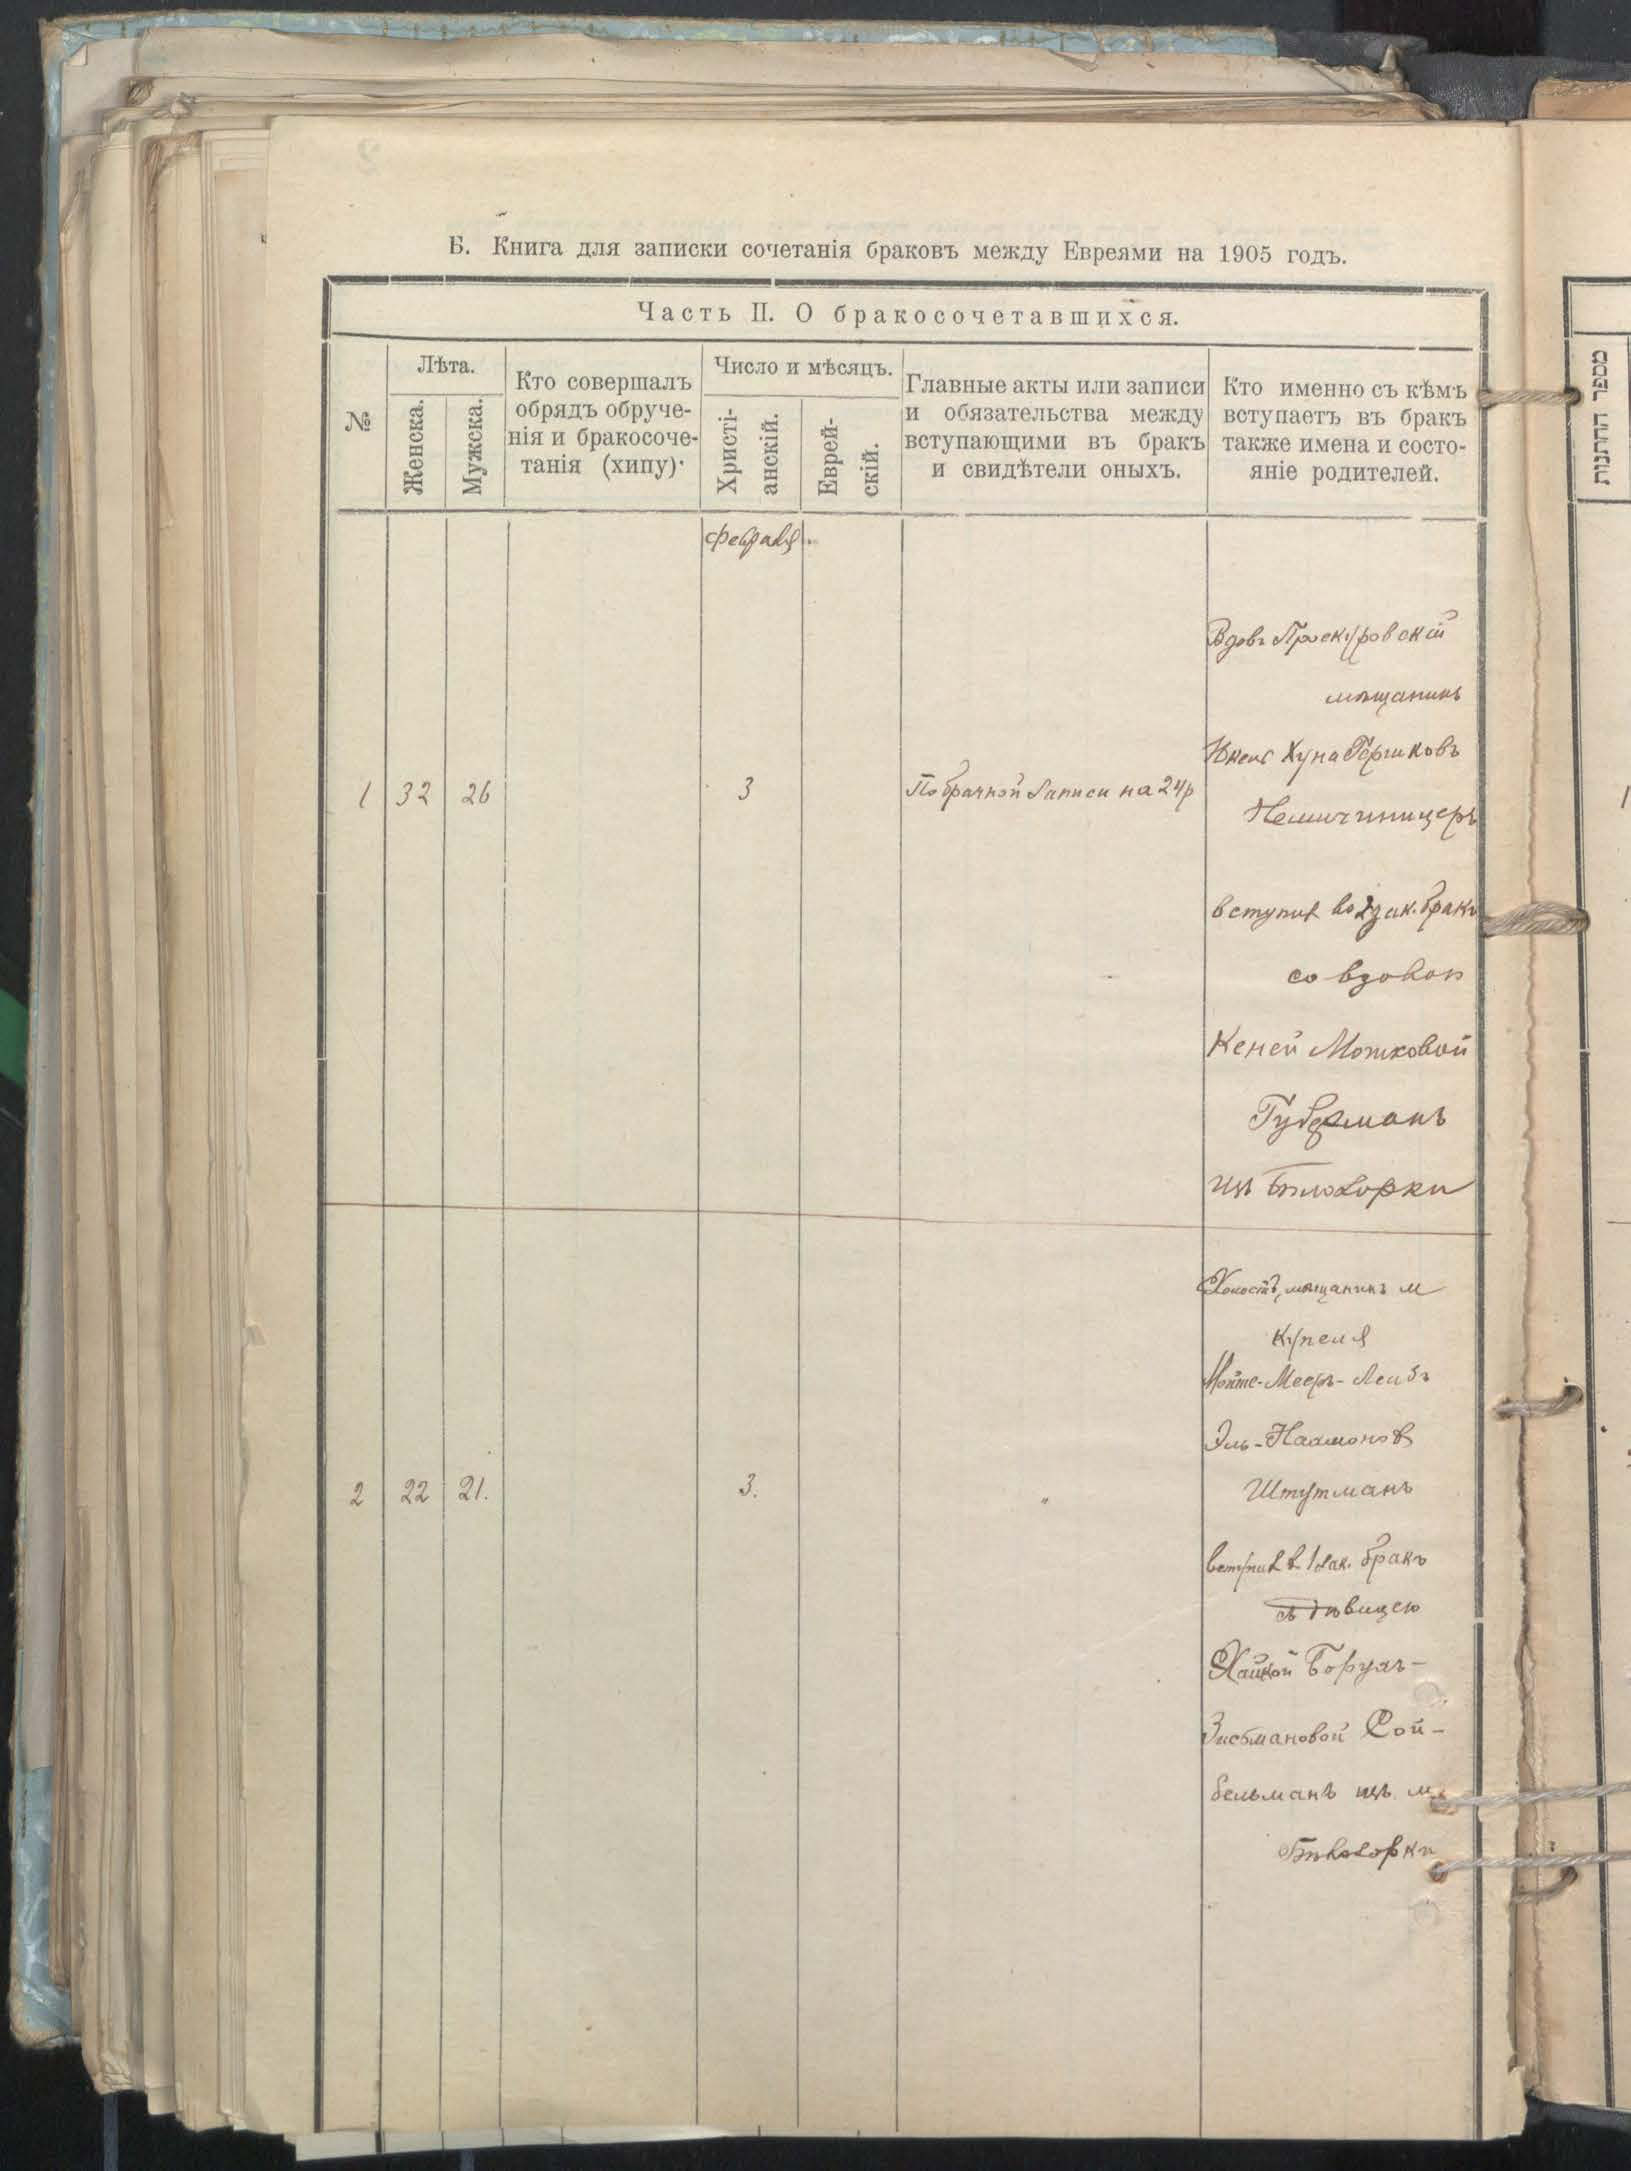 Б. Книга для записки сочетанія браковъ между Евреями на 1905 годъ.
Часть II. О бракосочетавшихся.
№
Лѣта.
Женска.
Мужска.
Кто совершалъ
обрядъ обруче-
нія и бракосоче-
танія (хипу).
Число и мѣсяцъ.
Христі-
анскій.
Еврей-
скій.
Главные акты или записи
и обязательства между
вступающими въ бракъ
и свидѣтели оныхъ.
Кто именно съ кѣмъ
вступаетъ въ бракъ
также имена и состо-
яніе родителей.
Февраля
1 32 26 3 По брачной записи на 24р
Вдовъ Проскуровскій
мѣщанинъ
Хуна Гершковъ
Немичиницеръ
вступил во 2 зак. бракъ
со вдовою
Кеней Мошковой
Губерманъ
изъ Бѣлозорки
2 22 21. 3. "
Холостъ, мѣщанинъ м
Купеля
Мойше-Мееръ-Лейзъ
Эль-Нахмонов
Штутманъ
вступил в 1 зак. бракъ
съ дѣвицею
Хайкой Борухъ-
Зисьмановой Сой-
бельманъ изъ м
Бѣлозорки
מספר החתנות